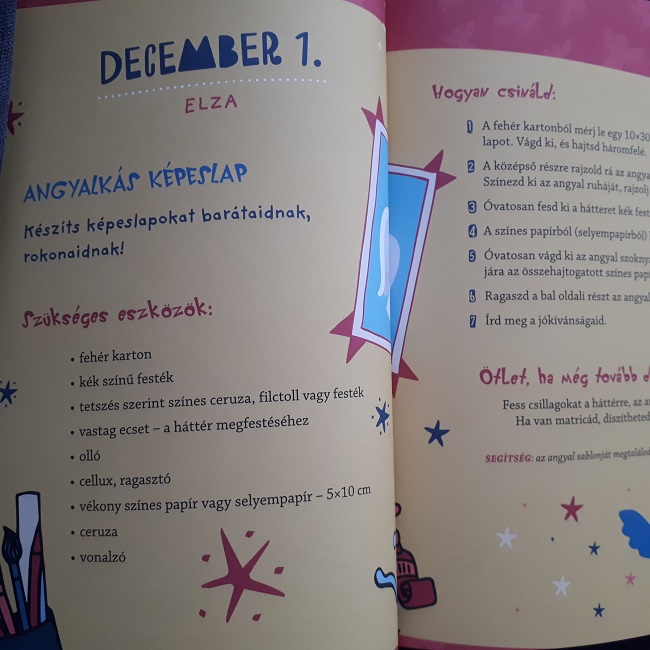 DECEMBER 1.
ELZA
ANGYALKÁS KÉPESLAP
Készíts képeslapokat barátaidnak,
rokonaidnak!
Szükséges eszközök:
• fehér karton
• kék színű festék
• tetszés szerint színes ceruza, filctoll vagy festék
• vastag ecset – a háttér megfestéséhez
• olló
• cellux, ragasztó
• vékony színes papír vagy selyempapír – 5×10 cm
• ceruza
• vonalzó
Hogyan csináld:
1 A fehér kartonból mérj le egy 10×30
lapot. Vágd ki, és hajtsd háromfelé.
2 A középső részre rajzold rá az
Színezd ki az angyal ruháját, rajzolj
3 Óvatosan fesd ki a hátteret kék
4 A színes papírból (selyempapírból)
5 Óvatosan vágd ki az angyal
jára az összehajtogatott színes
6 Ragaszd a bal oldali részt az
7 Írd meg a jókívánságaid.
Ötlet, ha még tovább
Fess csillagokat a háttérre, az
Ha van matricád, díszítheted
SEGÍTSÉG: az angyal sablonját